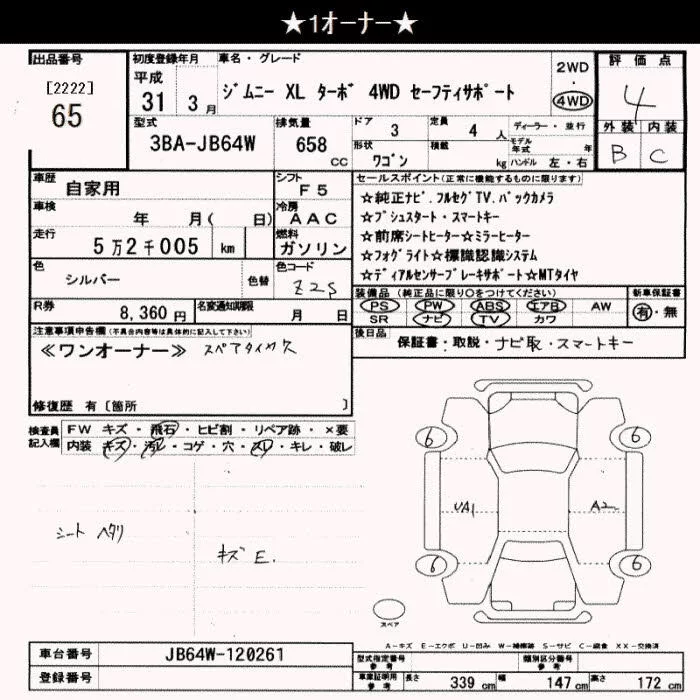 ★1オーナー★
出品番号
[2222]
65
初度登録年月
平成
31 3月
車名・グレード
ジムニー XL ターボ 4WD セーフティサポート
2WD
・
4WD
評価点
4
外装 内装
B C
型式
3BA-JB64W
排気量
658
CC
ドア 3
定員 4 人
ディーラー・並行
形状
ワゴン
積載
kg
モデル年式 年
ハンドル 左・右
車歴 自家用
シフト F5
車検 年 月( 日)
冷房 AAC
走行 5万2千005 km
燃料 ガソリン
色 シルバー 色替
色コード Z2S
R券 8,360円
名変通知期限 月 日
セールスポイント(正常に機能するものに限ります)
☆純正ナビ.フルセグTV.バックカメラ
☆プシュスタート・スマートキー
☆前席シートヒーター☆ミラーヒーター
☆フォグライト☆標識認識システム
☆ディアルセンサーブレーキサポート☆MTタイヤ
装備品(純正品に限り○をつけてください)
PS PW ABS エアB AW
SR ナビ TV カワ
新車保証書
有・無
後日品
保証書・取説・ナビ取・スマートキー
注意事項申告欄(不具合内容等は具体的に記入して下さい)
≪ワンオーナー≫ スペアタイヤ欠
修復歴 有〔箇所 〕
検査員記入欄
FW キズ・飛石・ヒビ割・リペア跡・×要
内装 キズ・汚レ・コゲ・穴・スレ・キレ・破レ
シート ヘタリ
キズ E.
6 6
UA1 A2
6 6
スペア
A−キズ E−エクボ U−凹み W−補修跡 S−サビ C−腐食 XX−交換済
車台番号 JB64W-120261
登録番号
型式指定番号 参考
類別区分番号 参考
車庫証明用 参考
長さ 339 cm 幅 147 cm 高さ 172 cm